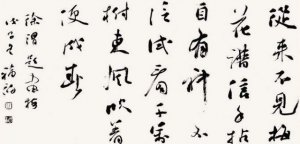 從来不見梅
花譜信手拈
自有神不
信試看千萬
樹東風吹着
便成春
徐渭題畫梅